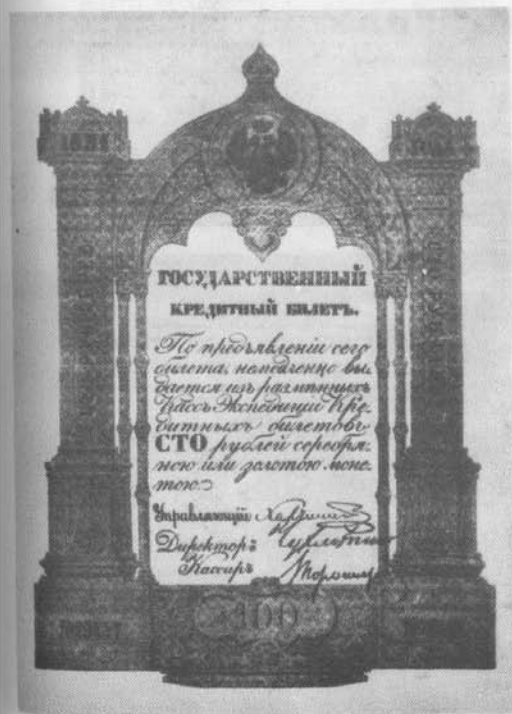 ГОСУДАРСТВЕННЫЙ
КРЕДИТНЫЙ БИЛЕТЪ.
По предъявленіи сего
билета, немедленно вы-
дается изъ размѣнныхъ
Кассъ Экспедиціи Кре-
дитныхъ билетовъ
СТО рублей серебря-
ною или золотою моне-
тою.
Управляющій
Директоръ
Кассиръ
100